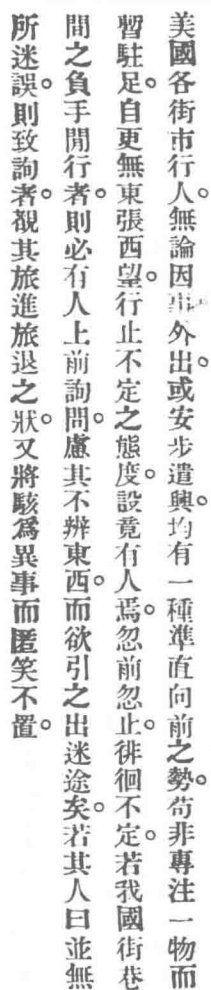 美國各街市行人。無論因事外出。或安步遣興。均有一種準直向前之勢。苟非專注一物而
暫駐足。自更無東張西望。行止不定之態度。設竟有人焉。忽前忽止。徘徊不定。若我國街巷
間之負手閒行者。則必有人上前詢問。慮其不辨東西。而欲引之出迷途矣。若其人曰並無
所迷誤。則致詢者。覩其旅進旅退之狀。又將駭爲異事而匿笑不置。